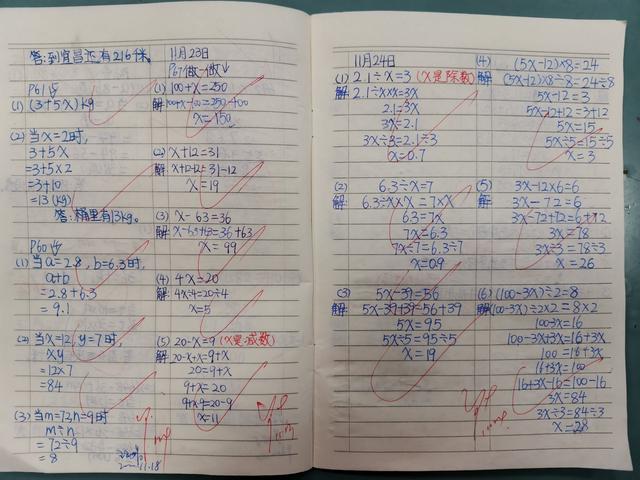 答:到宜昌还有216千米。
P61
(1) (3+5x)kg
(2) 当x=2时,
3+5x
=3+5×2
=3+10
=13(kg)
答:桶里有13kg。
P60
(1) 当a=2.8,b=6.3时,
a+b
=2.8+6.3
=9.1
(2) 当x=12,y=7时,
xy
=12×7
=84
(3) 当m=72,n=9时
m÷n
=72÷9
=8
11.18
11月23日
P67做一做
(1) 100+x=250
解:100+x-100=250-100
x=150
(2) x+12=31
解:x+12-12=31-12
x=19
(3) x-63=36
解:x-63+63=36+63
x=99
(4) 4x=20
解:4x÷4=20÷4
x=5
(5) 20-x=9 (x是减数)
解:20-x+x=9+x
20=9+x
9+x=20
9+x-9=20-9
x=11
11月24日
(1) 2.1÷x=3 (x是除数)
解:2.1÷x×x=3x
2.1=3x
3x=2.1
3x÷3=2.1÷3
x=0.7
(2) 6.3÷x=7
解:6.3÷x×x=7×x
6.3=7x
7x=6.3
7x÷7=6.3÷7
x=0.9
(3) 5x-39=56
解:5x-39+39=56+39
5x=95
5x÷5=95÷5
x=19
(4) (5x-12)×8=24
解:(5x-12)×8÷8=24÷8
5x-12=3
5x-12+12=3+12
5x=15
5x÷5=15÷5
x=3
(5) 3x-12×6=6
解:3x-72=6
3x-72+72=6+72
3x=78
3x÷3=78÷3
x=26
(6) (100-3x)÷2=8
解:(100-3x)÷2×2=8×2
100-3x=16
100-3x+3x=16+3x
100=16+3x
16+3x=100
16+3x-16=100-16
3x=84
3x÷3=84÷3
x=28